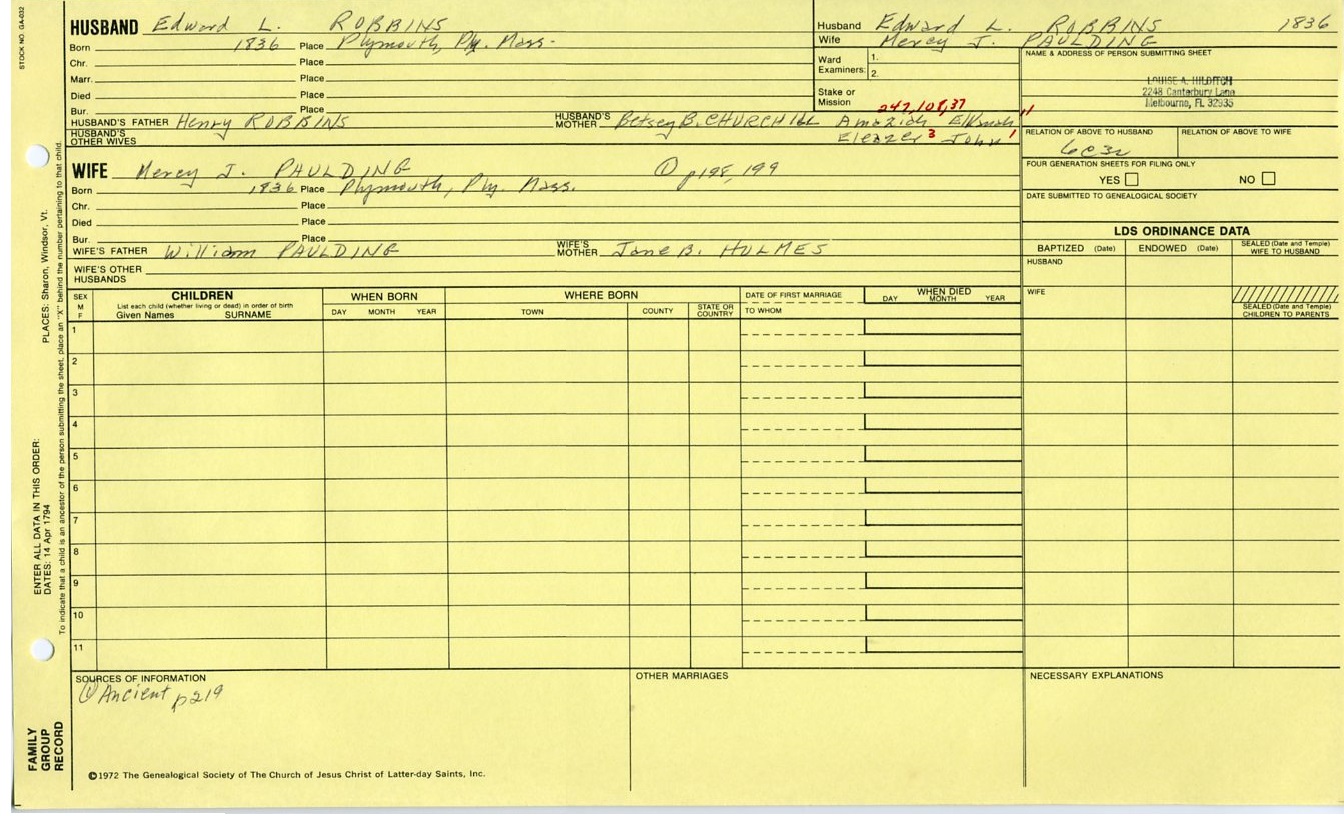 STOCK NO. GA-032
HUSBAND Edward L. ROBBINS
Born 1836 Place Plymouth, Ply. Mass.
Chr. Place
Marr. Place
Died Place
Bur. Place
HUSBAND'S FATHER Henry ROBBINS HUSBAND'S MOTHER Betsey B. CHURCHILL
HUSBAND'S OTHER WIVES
Husband Edward L. ROBBINS 1836
Wife Mercy J. PAULDING
Ward Examiners: 1.
2.
Stake or Mission
247,108,37
Amaziah Elkanah 11
Eleazer 3 John 1
NAME & ADDRESS OF PERSON SUBMITTING SHEET
LOUISE A. HILDITCH
2248 Canterbury Lane
Melbourne, FL 32935
RELATION OF ABOVE TO HUSBAND RELATION OF ABOVE TO WIFE
6C3R
FOUR GENERATION SHEETS FOR FILING ONLY
YES NO
DATE SUBMITTED TO GENEALOGICAL SOCIETY
WIFE Mercy J. PAULDING 1 p198, 199
Born 1836 Place Plymouth, Ply. Mass.
Chr. Place
Died Place
Bur. Place
WIFE'S FATHER William PAULDING WIFE'S MOTHER Jane B. HOLMES
WIFE'S OTHER HUSBANDS
LDS ORDINANCE DATA
BAPTIZED (Date) ENDOWED (Date) SEALED (Date and Temple) WIFE TO HUSBAND
HUSBAND
WIFE
SEALED (Date and Temple) CHILDREN TO PARENTS
SEX M F
CHILDREN
List each child (whether living or dead) in order of birth
Given Names SURNAME
WHEN BORN
DAY MONTH YEAR
WHERE BORN
TOWN COUNTY STATE OR COUNTRY
DATE OF FIRST MARRIAGE
TO WHOM
WHEN DIED
DAY MONTH YEAR
1
2
3
4
5
6
7
8
9
10
11
SOURCES OF INFORMATION
1 Ancient p219
OTHER MARRIAGES
NECESSARY EXPLANATIONS
©1972 The Genealogical Society of The Church of Jesus Christ of Latter-day Saints, Inc.
FAMILY GROUP RECORD
ENTER ALL DATA IN THIS ORDER:
DATES: 14 Apr 1794
PLACES: Sharon, Windsor, Vt.
To indicate that a child is an ancestor of the person submitting the sheet, place an "X" behind the number pertaining to that child.